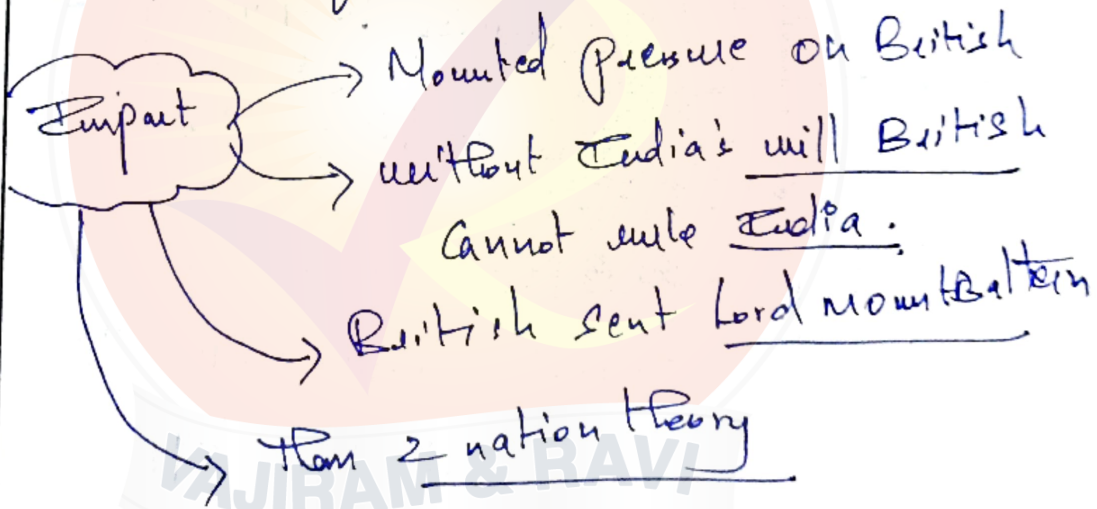 Impact
Mounted pressure on British
without India's will British
Cannot rule India.
British sent Lord MountBattein
than 2 nation theory
VAJIRAM & RAVI